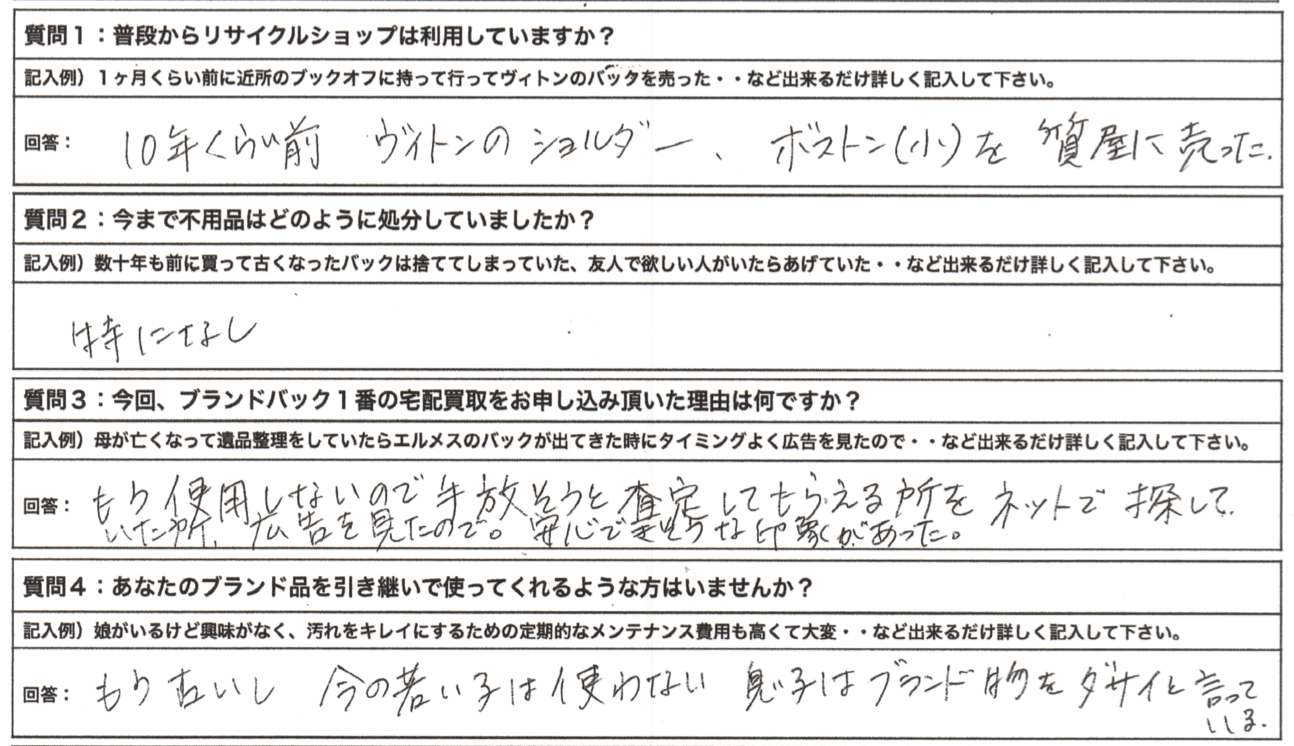 質問1：普段からリサイクルショップは利用していますか？
記入例）1ヶ月くらい前に近所のブックオフに持って行ってヴィトンのバックを売った・・など出来るだけ詳しく記入して下さい。
回答： 10年くらい前 ヴィトンのショルダー、ボストン(小)を質屋に売った.
質問2：今まで不用品はどのように処分していましたか？
記入例）数十年も前に買って古くなったバックは捨ててしまっていた、友人で欲しい人がいたらあげていた・・など出来るだけ詳しく記入して下さい。
特になし
質問3：今回、ブランドバック1番の宅配買取をお申し込み頂いた理由は何ですか？
記入例）母が亡くなって遺品整理をしていたらエルメスのバックが出てきた時にタイミングよく広告を見たので・・など出来るだけ詳しく記入して下さい。
回答： もう使用しないので手放そうと査定してもらえる所をネットで探して
いた所、広告を見たので。安心できそうな印象があった。
質問4：あなたのブランド品を引き継いで使ってくれるような方はいませんか？
記入例）娘がいるけど興味がなく、汚れをキレイにするための定期的なメンテナンス費用も高くて大変・・など出来るだけ詳しく記入して下さい。
回答： もう古いし 今の若い子は使わない 息子はブランド物をダサイと言って
いる.